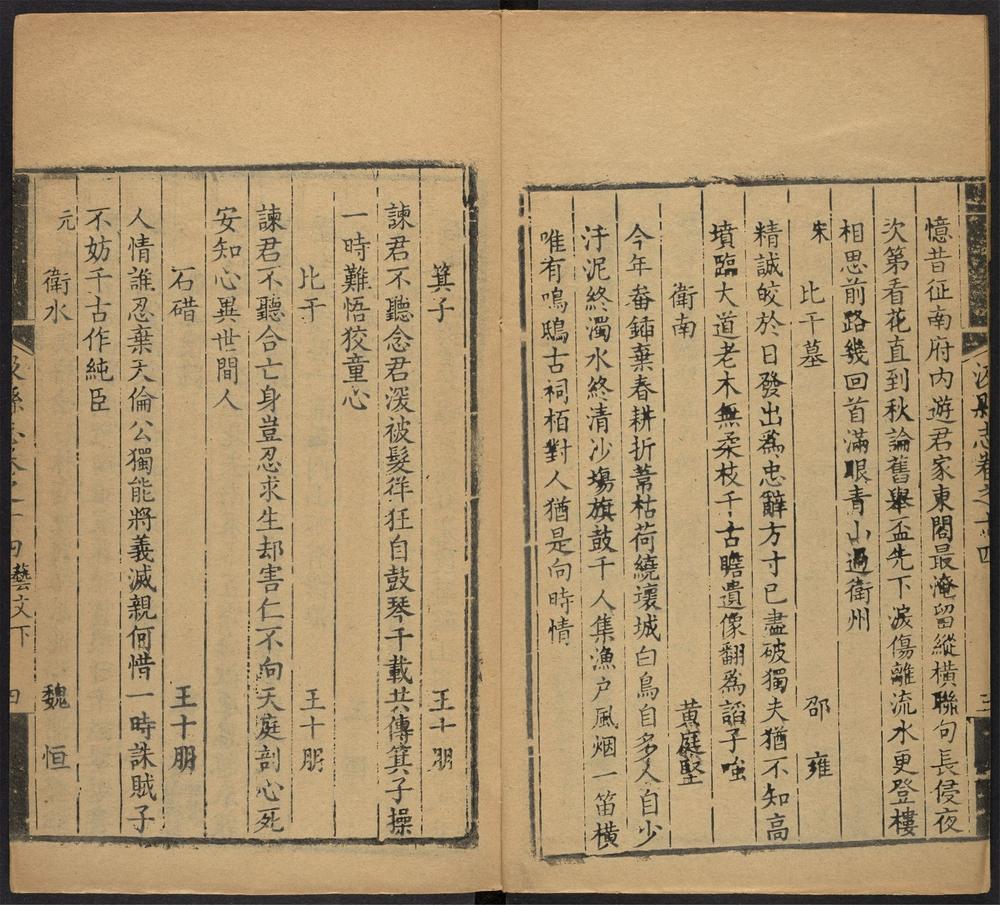 憶昔征南府內遊君家東閣最淹留縱橫聯句長侵夜
次第看花直到秋論舊舉盃先下淚傷離流水更登樓
相思前路幾回首滿眼青山過衛州
宋 比干墓 邵 雍
精誠皎於日發出爲忠辭方寸已盡破獨夫猶不知高
墳臨大道老木無柔枝千古瞻遺像翻爲謟子嗤
衛南 黄庭堅
今年畚鍤棄春耕折葦枯荷繞壞城白鳥自多人自少
汙泥終濁水終清沙場旗鼓千人集漁户風烟一笛橫
唯有鳴鴟古祠栢對人猶是向時情
汲縣志卷之十四
三
箕子 王十朋
諫君不聽念君深被髮徉狂自鼓琴千載共傳箕子操
一時難悟狡童心
比干 王十朋
諫君不聽合亡身豈忍求生却害仁不向天庭剖心死
安知心異世間人
石碏 王十朋
人情誰忍棄天倫公獨能將義滅親何惜一時誅賊子
不妨千古作純臣
元 衛水 魏 恒
汲縣志卷之十四藝文下 四